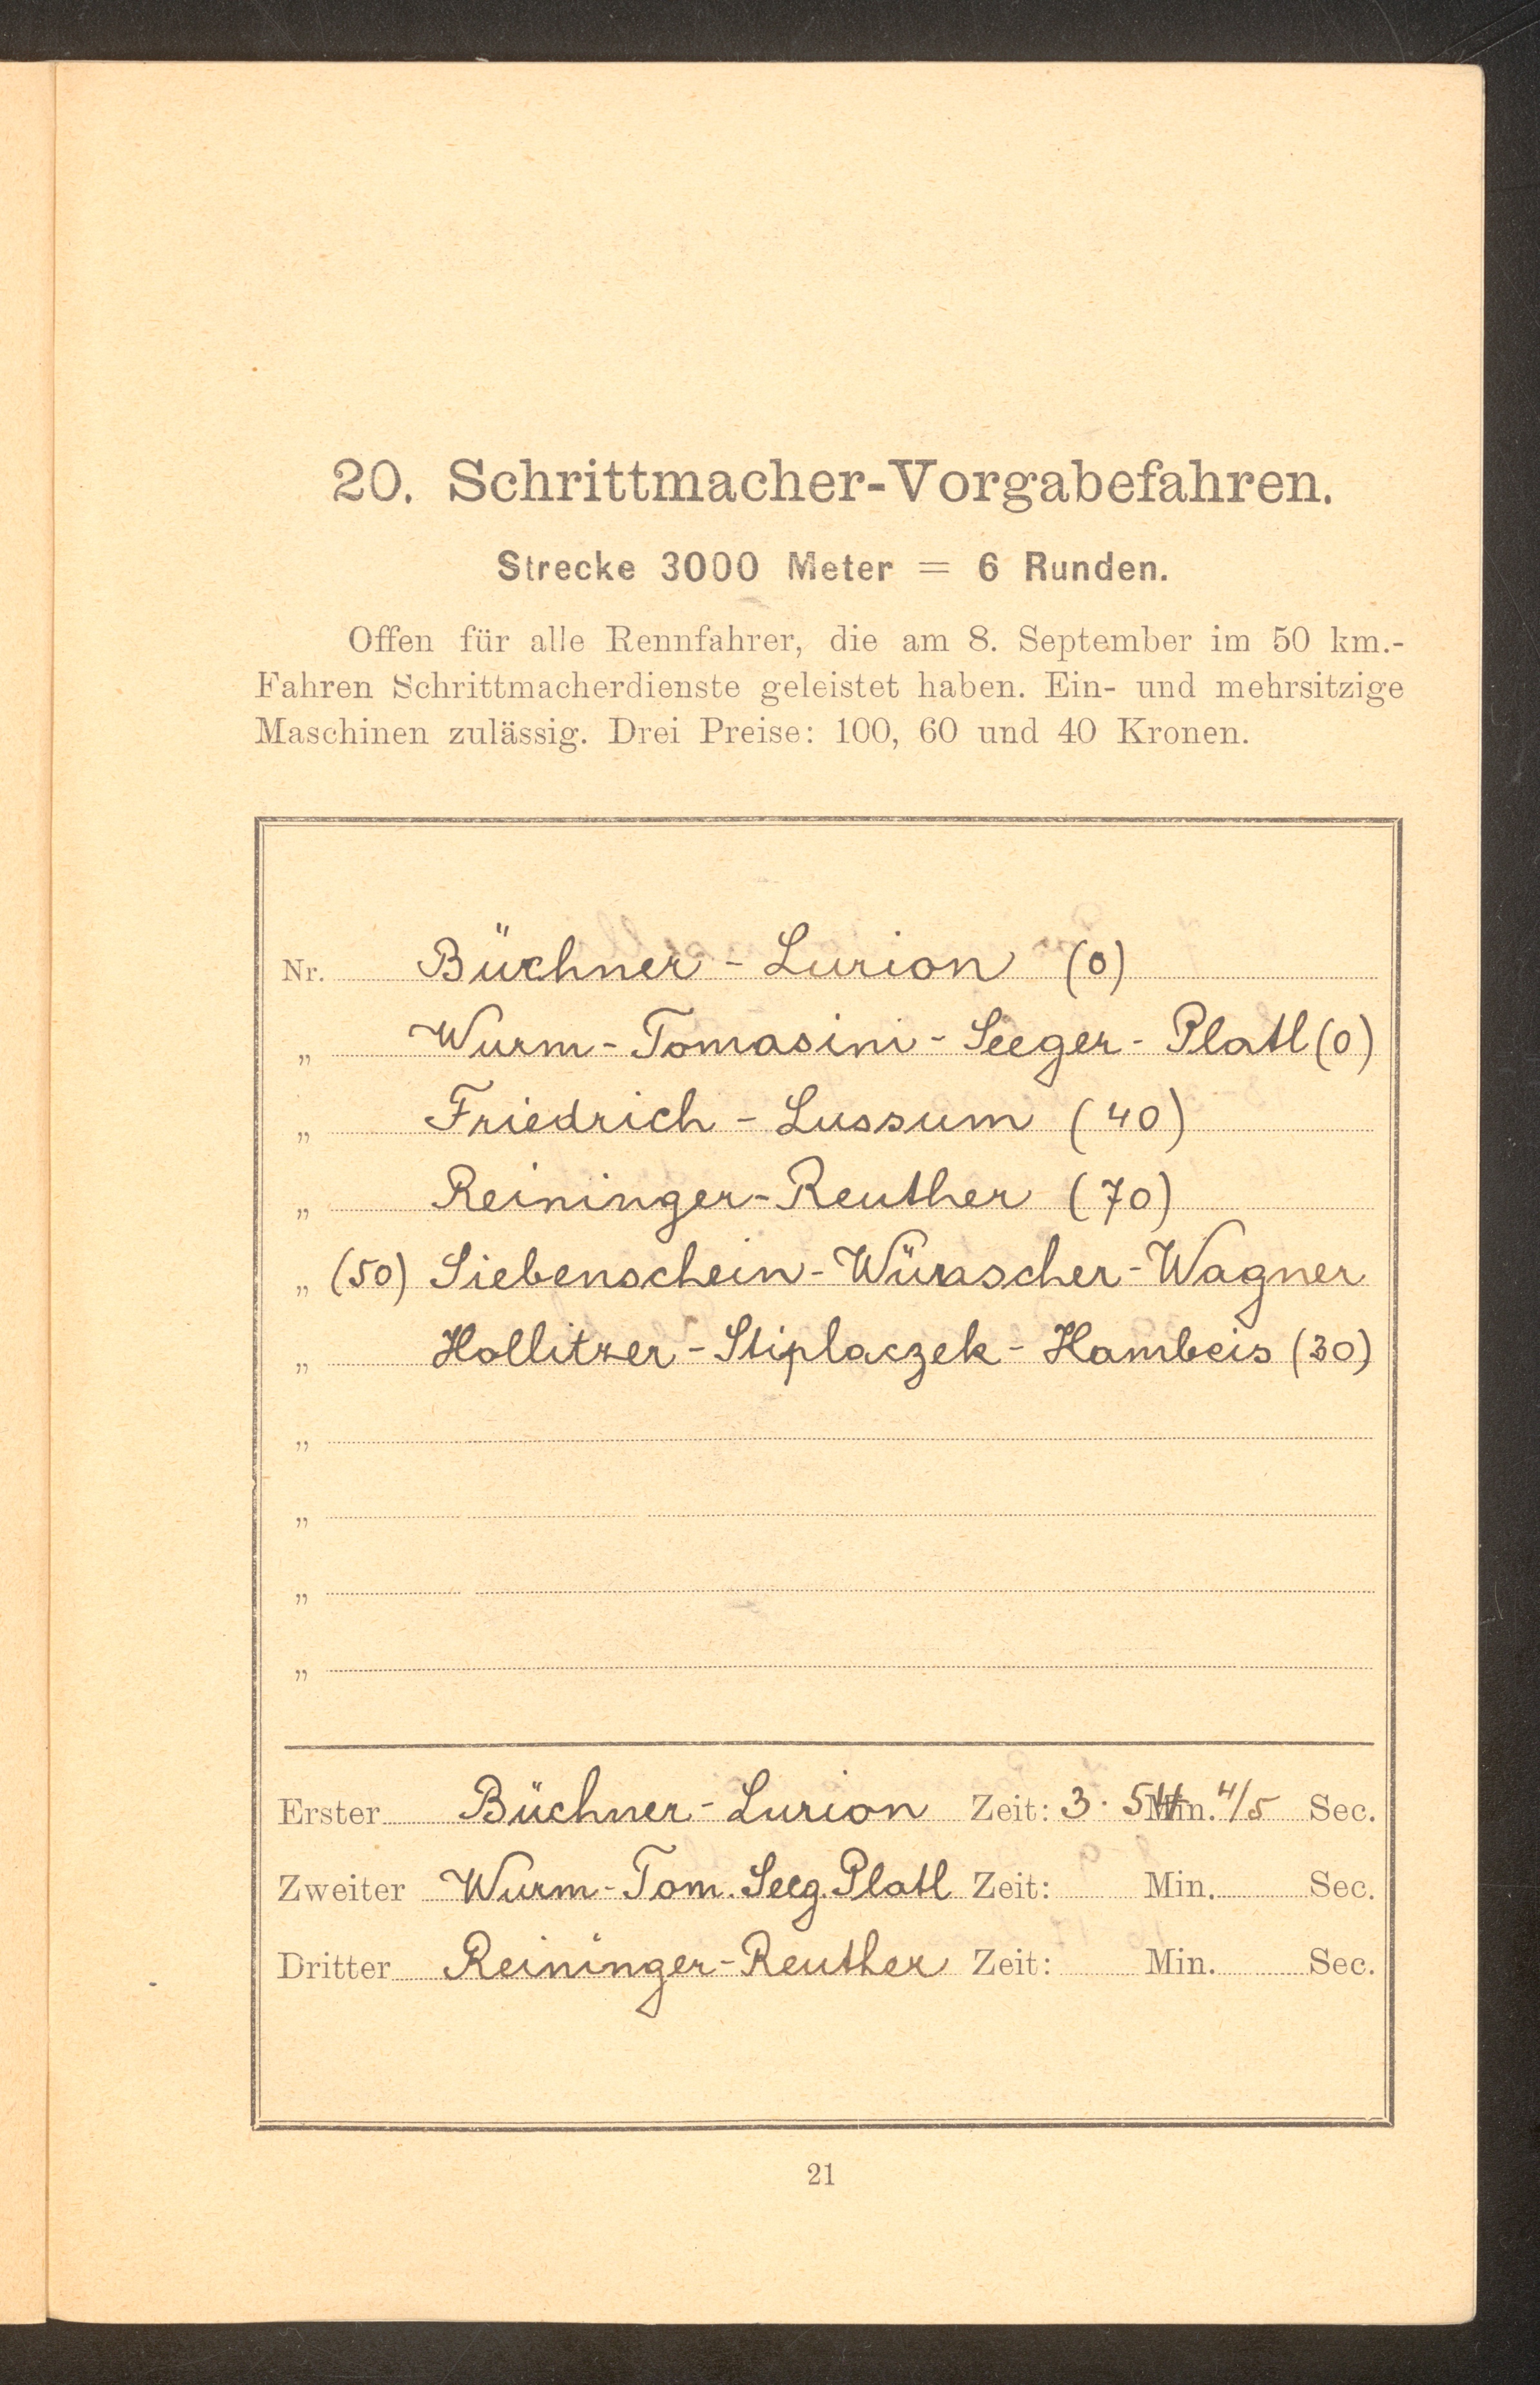 20. Schrittmacher-Vorgabefahren.
Strecke 3000 Meter = 6 Runden.
Offen für alle Rennfahrer, die am 8. September im 50 km.-
Fahren Schrittmacherdienste geleistet haben. Ein- und mehrsitzige
Maschinen zulässig. Drei Preise: 100, 60 und 40 Kronen.
Nr. Büchner - Lurion (0)
„ Wurm - Tomasini - Seeger - Platl (0)
„ Friedrich - Lussum (40)
„ Reininger - Reuther (70)
„ (50) Siebenschein - Würascher - Wagner
„ Hollitzer - Stiplaczek - Hambeis (30)
„
„
„
„
Erster Büchner - Lurion Zeit: 3 · 54 Min. 4/5 Sec.
Zweiter Wurm - Tom. Seeg. Platl Zeit: Min. Sec.
Dritter Reininger - Reuther Zeit: Min. Sec.
21